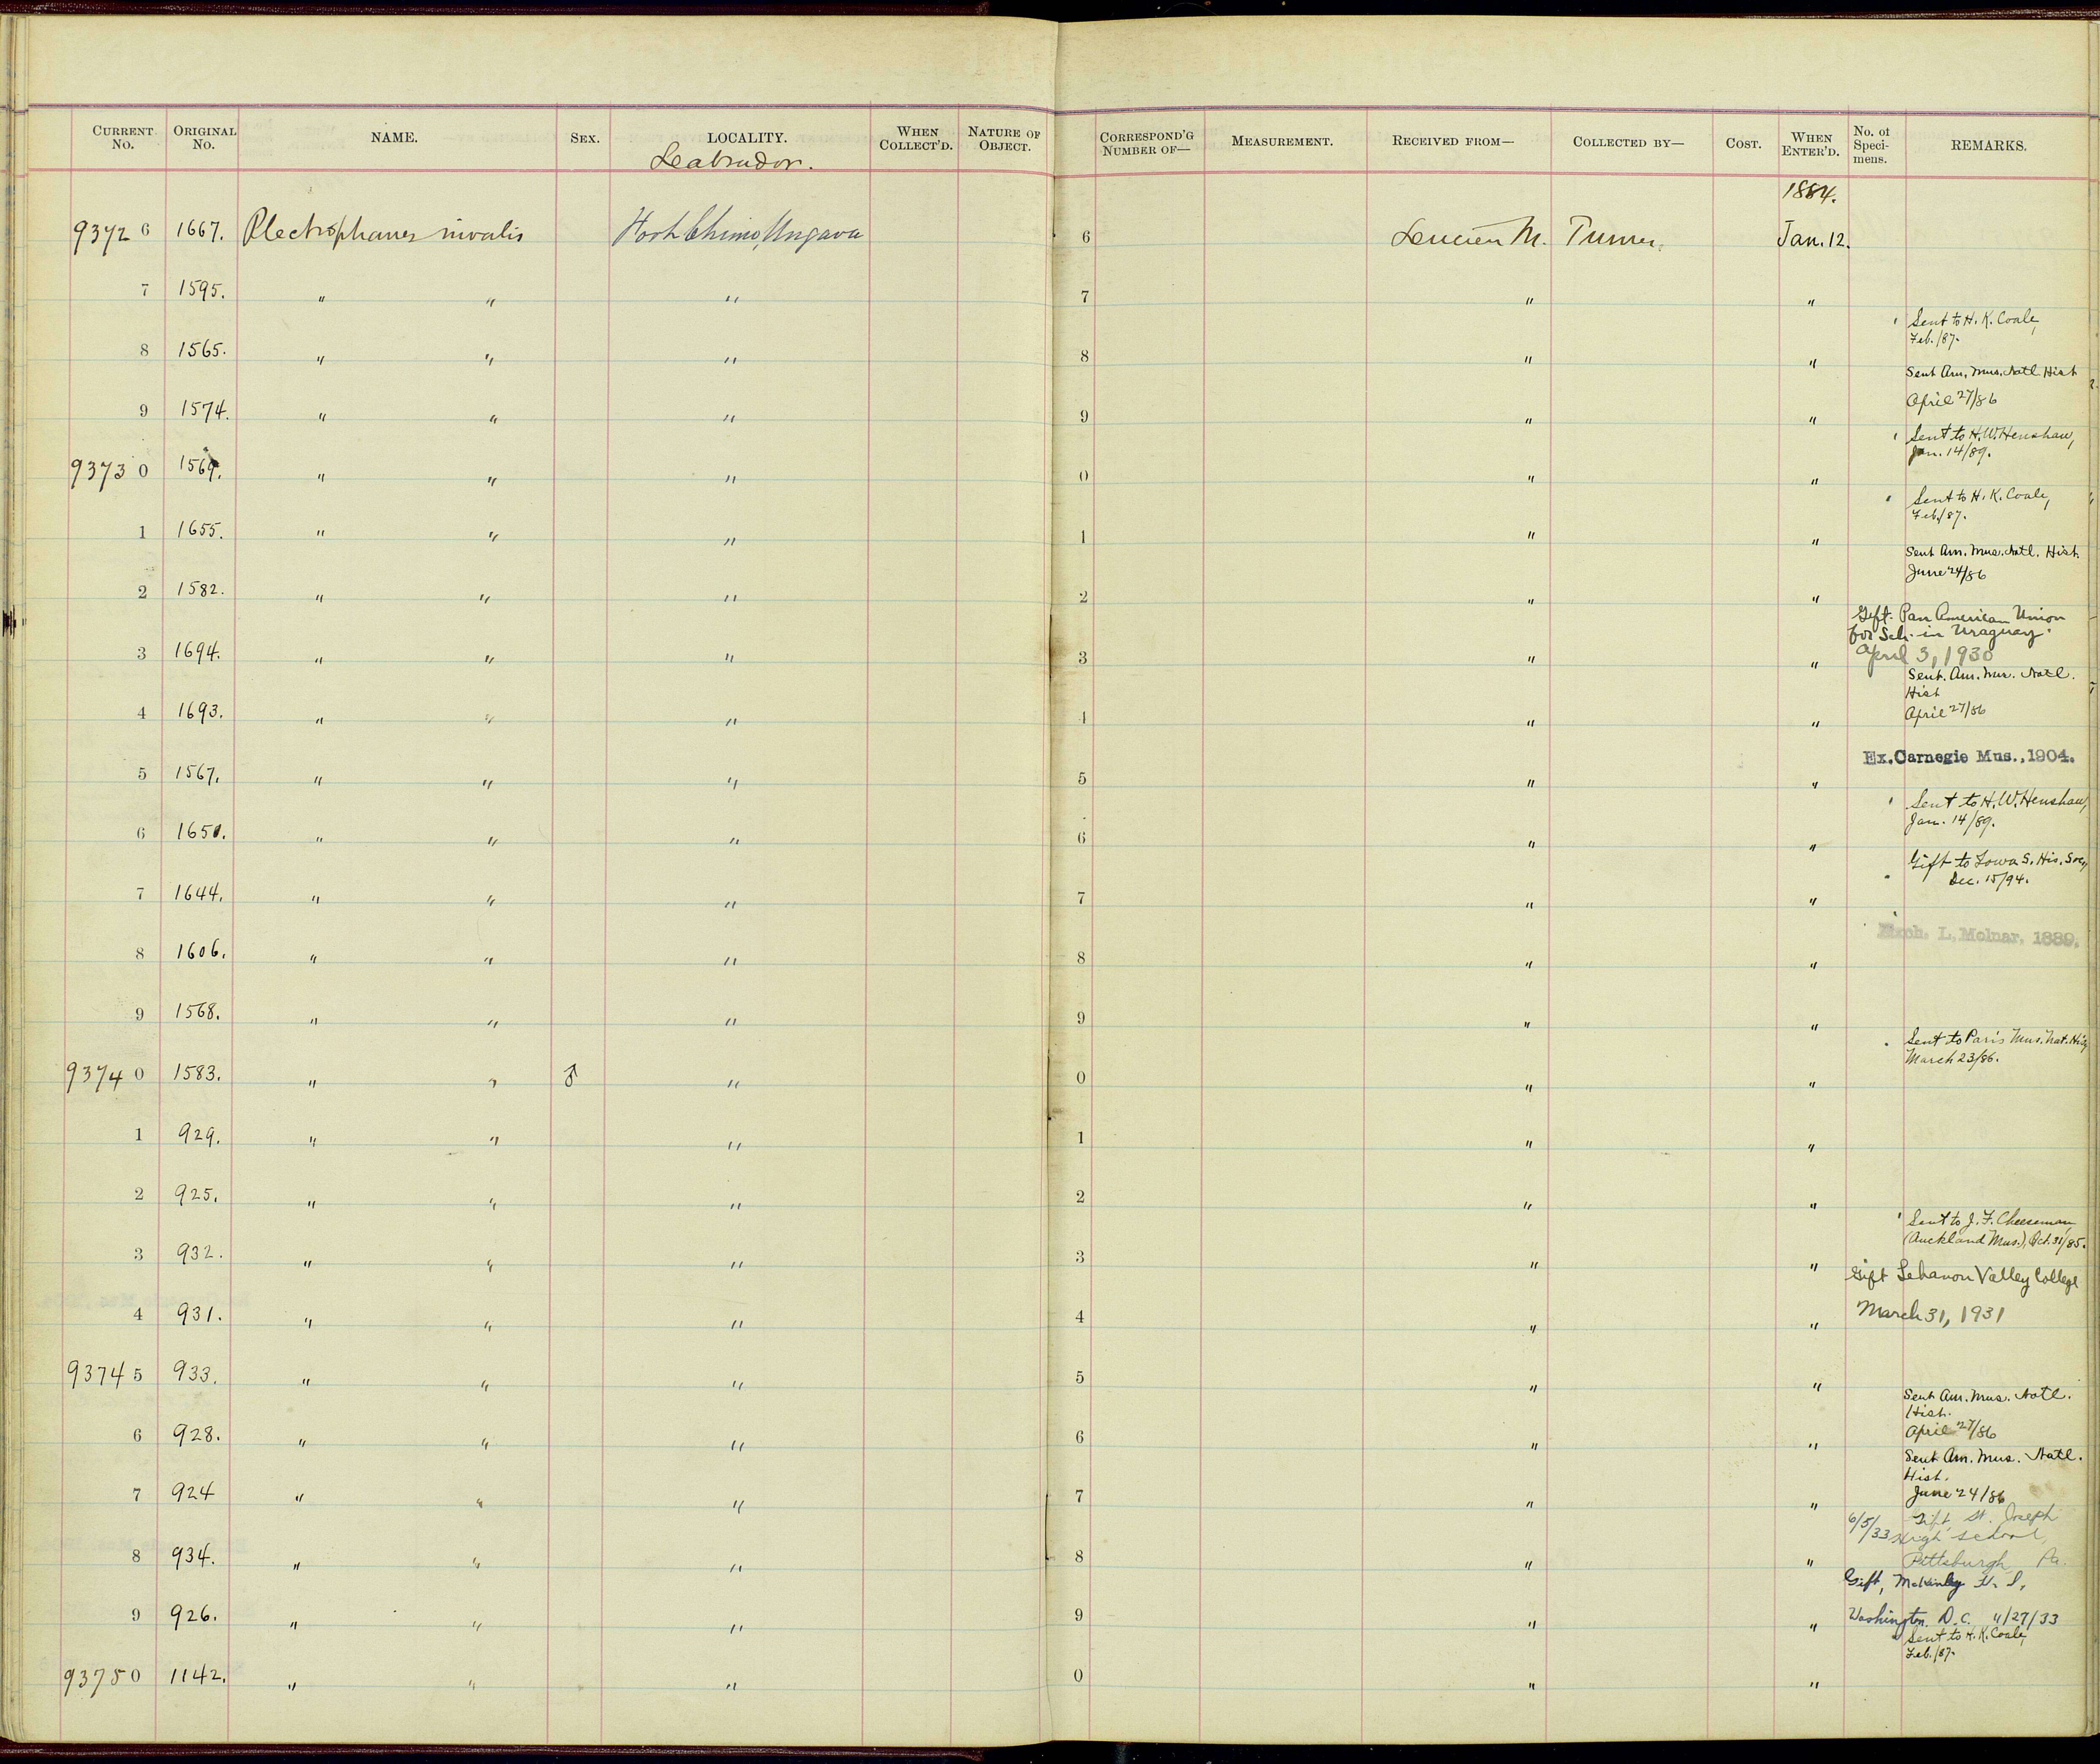 CURRENT No. ORIGINAL No. NAME. SEX. LOCALITY. WHEN COLLECT'D. NATURE OF OBJECT. CORRESPOND'G NUMBER OF— MEASUREMENT. RECEIVED FROM— COLLECTED BY— COST. WHEN ENTER'D. No. of Specimens. REMARKS.
Labrador.
1884.
93726 1667. Plectrophanes nivalis Fort Chimo, Ungava 6 Lucien M. Turner. Jan. 12.
7 1595. " " " 7 " "
Sent to H. K. Coale,
Feb./87.
8 1565. " " " 8 " "
Sent Am. Mus. Natl. Hist
April 27/86
9 1574. " " " 9 " "
Sent to H. W. Henshaw,
Jan. 14/89.
93730 1569. " " " 0 " "
Sent to H. K. Coale,
Feb./87.
1 1655. " " " 1 " "
Sent Am. Mus. Natl. Hist.
June 24/86
2 1582. " " " 2 " "
Gift. Pan American Union
for Sch. in Uraguay.
3 1694. " " " 3 " " April 3, 1930
Sent. Am. Mus. Natl.
Hist
4 1693. " " " 4 " " April 27/86
Ex. Carnegie Mus., 1904.
5 1567. " " " 5 " "
Sent to H. W. Henshaw,
Jan. 14/89.
6 1651. " " " 6 " "
Gift to Iowa S. His. Soc,
Dec. 15/94.
7 1644. " " " 7 " "
Exch. L. Molnar, 1889.
8 1606. " " " 8 " "
9 1568. " " " 9 " "
Sent to Paris Mus. Nat. His,
March 23/86.
93740 1583. " " ♂ " 0 " "
1 929. " " " 1 " "
2 925. " " " 2 " "
Sent to J. F. Cheeseman,
(Auckland Mus.), Oct. 31/85.
3 932. " " " 3 " "
Gift Lebanon Valley College
4 931. " " " 4 " " March 31, 1931
93745 933. " " " 5 " "
Sent Am. Mus. Natl.
Hist.
6 928. " " " 6 " " April 27/86
Sent Am. Mus. Natl.
Hist.
7 924 " " " 7 " " June 24/86
6/5/33 Gift St. Joseph
High School,
8 934. " " " 8 " " Pittsburgh Pa.
Gift, McKinley H. S.
9 926. " " " 9 " " Washington D.C. 4/27/33
Sent to H. K. Coale,
Feb./87.
93750 1142. " " " 0 " "